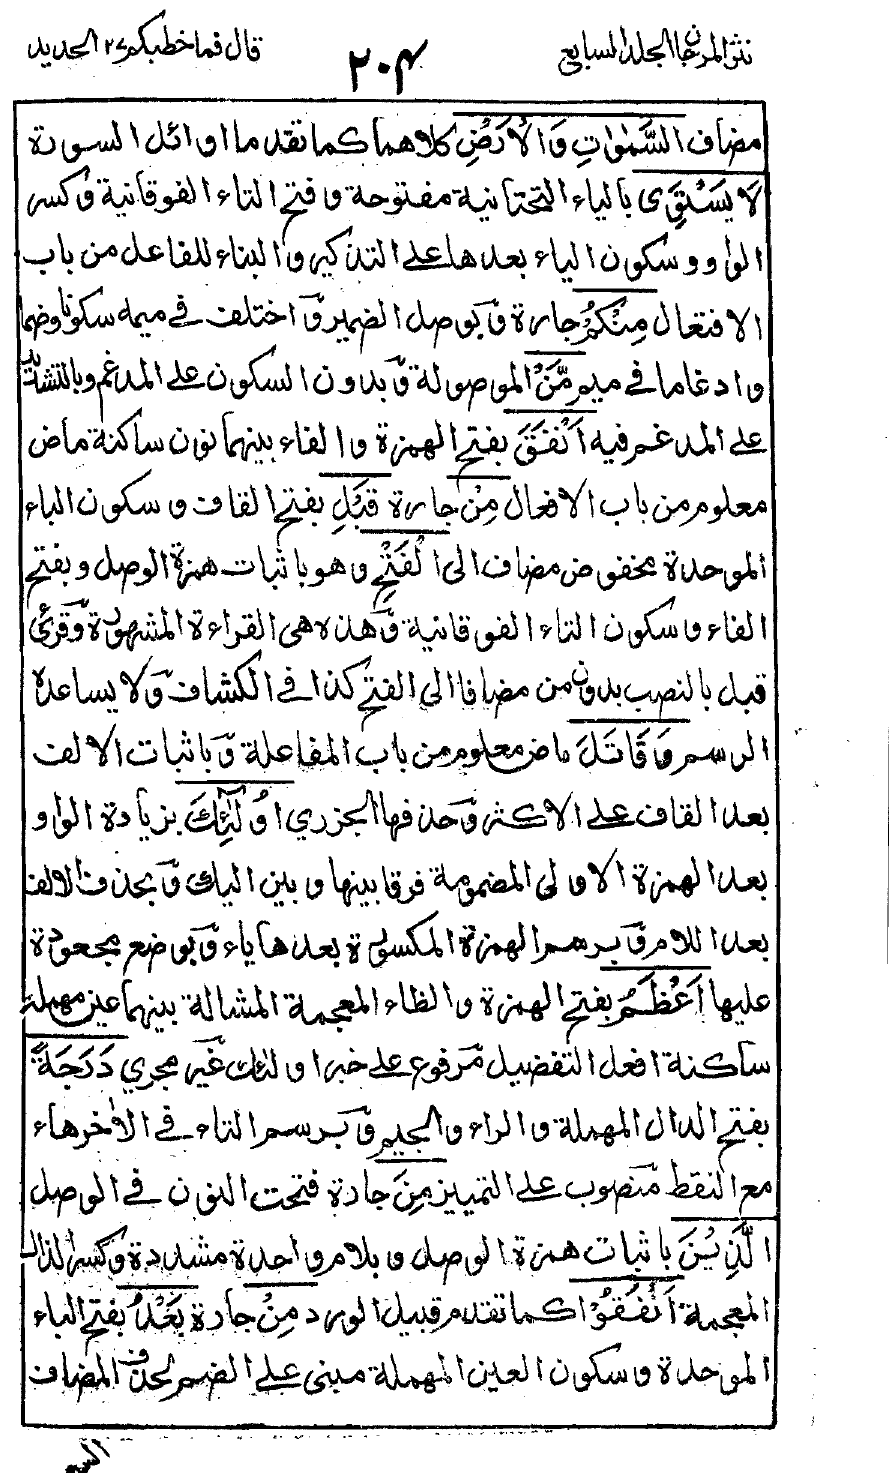 نثر المرجان الجلد السابع
٢٠٤
قال فما خطبكم ٢٧ الحديد
مضاف السَّمٰوٰتِ وَالْاَرْضِ كلاهما كما تقدما اوائل السورة
لَا يَسْتَوِى بالياء التحتانية مفتوحة و فتح التاء الفوقانية وكسر
الواو وسكون الياء بعدها على التذكير والبناء للفاعل من باب
الافتعال مِنْكُمْ جارة وبوصل الضمير واختلف في ميمه سكونا وضما
وادغاما في ميم مَّنْ الموصولة وبدون السكون على المدغم وبالتشديد
على المدغم فيه اَنْفَقَ بفتح الهمزة والفاء بينهما نون ساكنة ماض
معلوم من باب الافعال مِنْ جارة قَبْلِ بفتح القاف وسكون الباء
الموحدة مخفوض مضاف الى الْفَتْحِ وهو باثبات همزة الوصل وبفتح
الفاء وسكون التاء الفوقانية وهذه هى القراءة المشهورة وقرئ
قبل بالنصب بدون من مضافا الى الفتح كذا في الكشاف ولا يساعده
الرسم وَقَاتَلَ ماض معلوم من باب المفاعلة وباثبات الالف
بعد القاف على الاكثر وحذفها الجزري اُولٰٓئِكَ بزيادة الواو
بعد الهمزة الاولى المضمومة فرقا بينها وبين اليك وبحذف الالف
بعد اللام وبرسم الهمزة المكسورة بعدها ياء وبوضع مجعودة
عليها اَعْظَمُ بفتح الهمزة والظاء المعجمة المشالة بينهما عين مهملة
ساكنة افعل التفضيل مرفوع على خبر اولئك غير مجرى دَرَجَةً
بفتح الدال المهملة والراء والجيم وبرسم التاء في الاٰخر هاء
مع النقط منصوب على التمييز مِنَ جارة فتحت النون في الوصل
الَّذِيْنَ باثبات همزة الوصل وبلام واحدة مشددة وكسر الذال
المعجمة اَنْفَقُوْا كما تقدم قبيل الورد مِنْ جارة بَعْدُ بفتح الباء
الموحدة وسكون العين المهملة مبنى على الضم لحذف المضاف